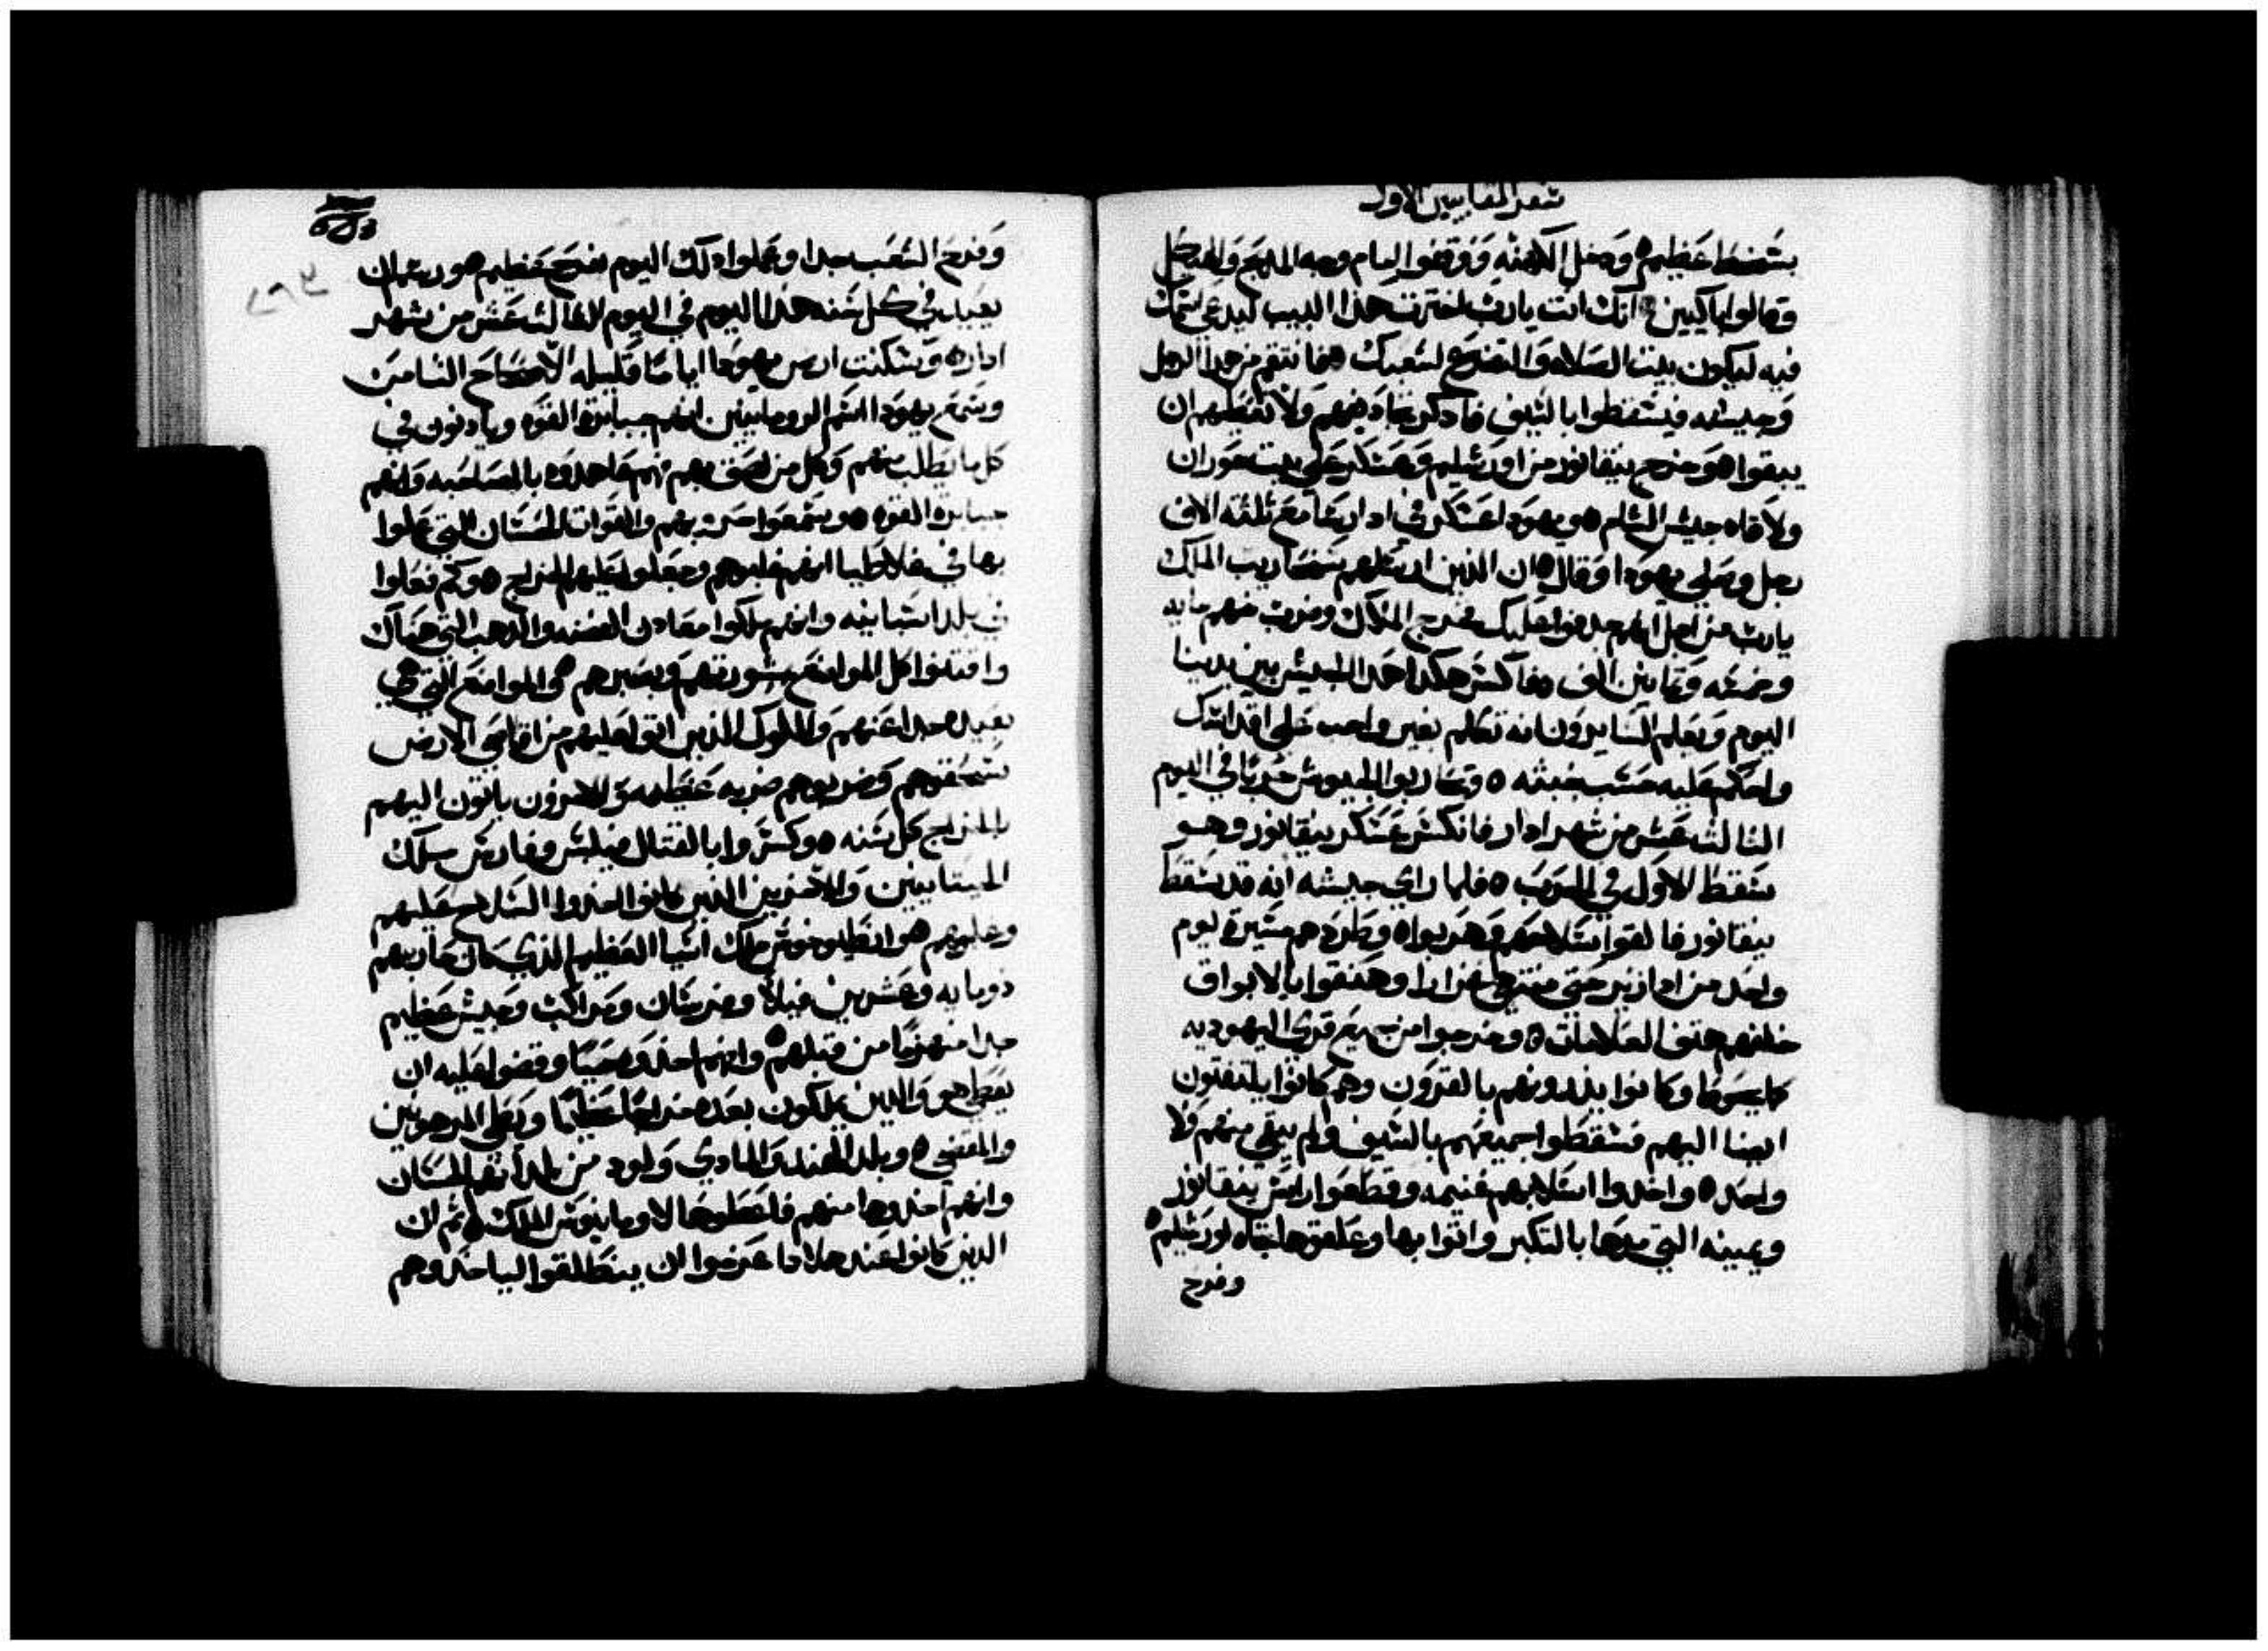 سفر المقابيين الاول
بسخط عظيم ودخل الكهنه ووقفوا امام وجه المدبح والهيكل
وقالوا باكيين انك انت يارب اخترت هدا البيت ليدعي اسمك
فيه ليكون بيت الصلاه والتضرع لشعبك فانتقم من هدا الرجل
وجيشه فيسقطوا بالسيف فادكر تجاديفهم ولا تعطيهم ان
يبقوا وخرج نيقانور من اورشليم وعسكر علي بيت حوران
ولاقاه جيش الشام ويهودا عسكر في ادارسا مع ثلثه الاف
رجل وصلي يهودا وقال ان الذين ارسلهم سنحاريب الملك
يارب من اجل انهم جدفوا عليك فخرج الملاك وضرب منهم مايه
وخمسه وثمانين الف فاكسر هكدا هدا الجيش بين يدينا
اليوم ويعلم السايرون انه تكلم بغير واجب علي اقداسك
واحكم عليه حسب خبثه وتحاربوا الجيوش حربا في اليوم
الثالث عشر من شهر ادار فانكسر عسكر نيقانور وهو
سقط الاول في الحرب فلما راي جيشه انه قد سقط
نيقانور فالقوا سلاحهم وهربوا وطردوهم مسيرة يوم
واحد من ادازير حتي منتهي غزارا وهتفوا بالابواق
خلفهم هتف العلامات وخرجوا من جميع قري اليهوديه
كايحوطا وكانوا يذرونهم بالقرون وهم كانوا يلتفتون
ايضا اليهم فسقطوا جميعهم بالسيف ولم يبقي منهم ولا
واحد واخدوا اسلابهم غنيمه وقطعوا راس نيقانور
ويمينه التي مدها بالتكبر واتوا بها وعلقوها تجاه اورشليم
وفرح
وفرح الشعب جدا وعملوا دلك اليوم بفرح عظيم ورسم ان
يعيد في كل سنه هدا اليوم في اليوم الثالث عشر من شهر
ادار وسكنت ارض يهودا اياما قليله الاصحاح الثامن
وسمع يهودا اسم الرومانيين انهم جبابرة القوه ويادنون في
كل ما يطلب منهم وكل من لصق بهم فهم عاهدوه بالمصاحبه وانهم
جبابرة القوه وسمعوا حروبهم والقوات الحسان التي عملوا
بها في غلاطيا انهم غلبوهم وجعلوا عليهم الخراج وكم فعلوا
في بلد اسبانيه وانهم ملكوا معادن الفضه والدهب التي هناك
واقتنوا كل المواضع بمشورتهم وبصبرهم والمواضع التي هي
بعيده جدا عنهم والملوك الذين اتوا عليهم من اقاصي الارض
سحقوهم وضربوهم ضربه عظيمه والاخرون ياتون اليهم
بالخراج كل سنه وكسروا بالقتال فيلبس وفارس ملك
الحيتانيين والاخرين الذين كانوا اخدوا السلاح عليهم
وغلبوهم وانطيوخوس ملك اسيا العظيم الذي كان حاربهم
دو مايه وعشرين فيلا وفرسان ومراكب وجيش عظيم
جدا منهزما من قبلهم وانهم اخدوه حيا وقضوا عليه ان
يعطي هو والذين يملكون بعده خراجا عظيما ويعطي المرهونين
والمقضي وبلد الهند والمادي ولود من بلدانهم الحسان
وانهم اخدوها منهم فاعطوها لاومانيوس الملك ثم ان
الذين كانوا عند هلادا عزموا ان ينطلقوا لياخدوهم